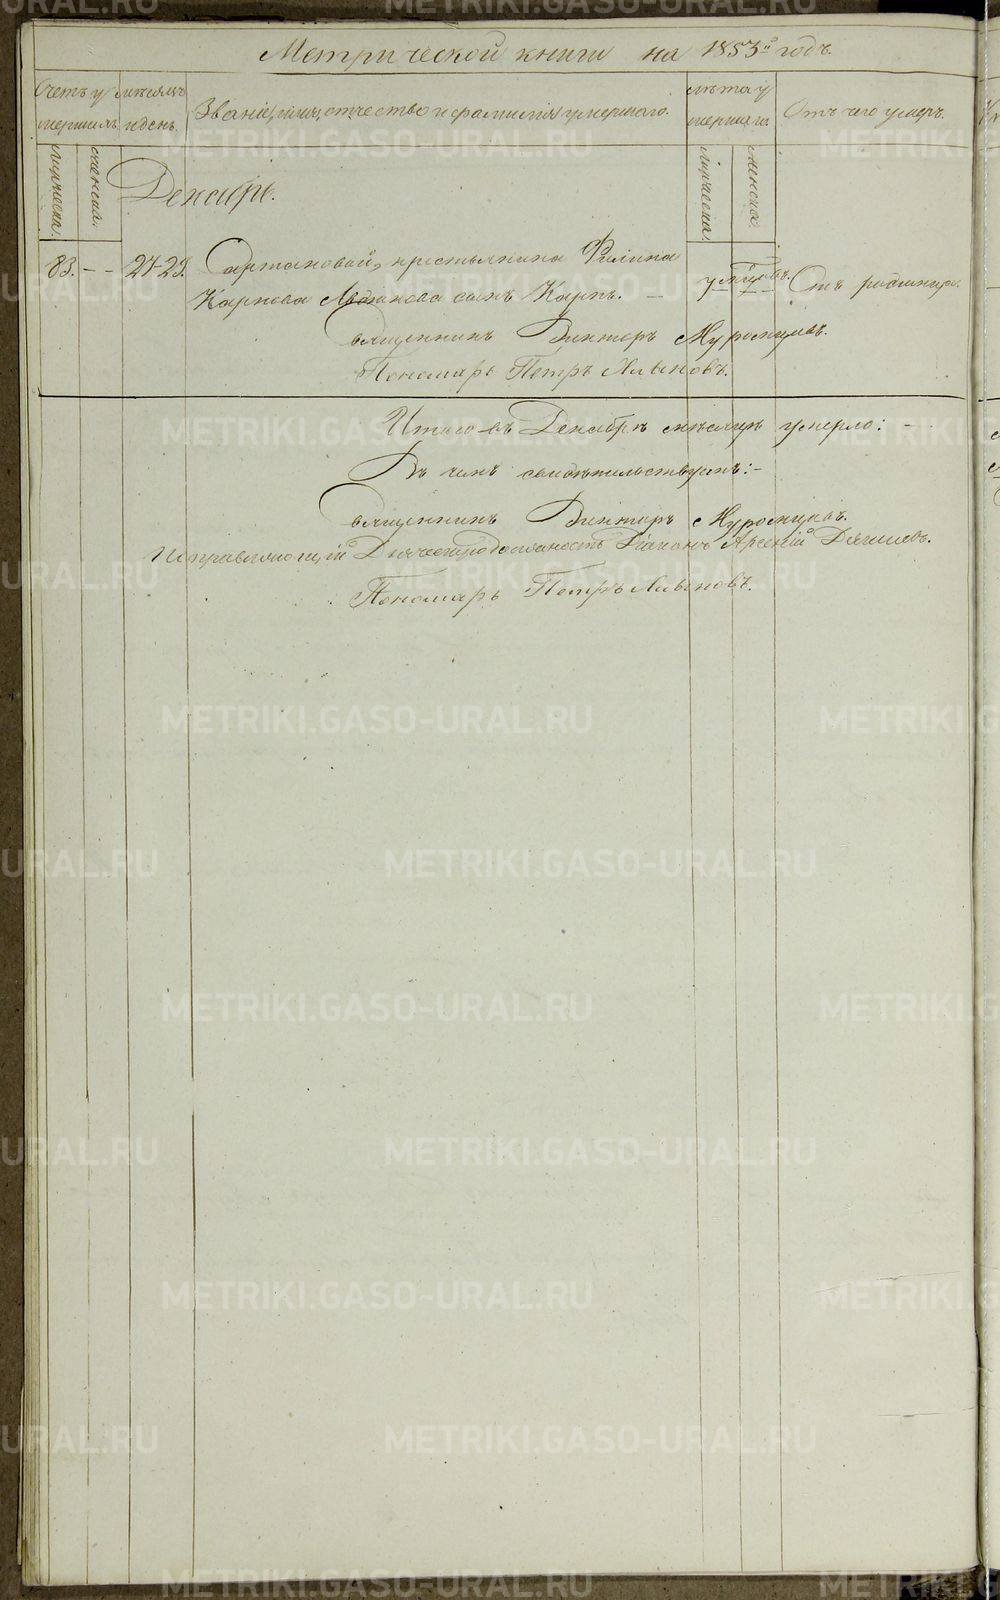 Метрической книги на 1853й годъ.
Счетъ у
мершихъ
мѣсяцъ
и день.
Званіе, имя, отчество и фамилія умершаго.
лѣта у
мершихъ
Отъ чего умеръ.
мужеска.
женска.
мужеска.
женска.
Декабрь.
83. — — 27-29. крестьянина Филипа
Карпова сынъ Карпъ. — Отъ родимца.
Священникъ Викторъ
Пономарь Петръ Хлыновъ.
Итого въ Декабрѣ мѣсяцѣ умерло: —
Въ чемъ свидѣтельствуемъ: —
Священникъ Викторъ
Исправляющій должность Діаконъ Арсеній
Пономарь Петръ Хлыновъ.
METRIKI.GASO-URAL.RU